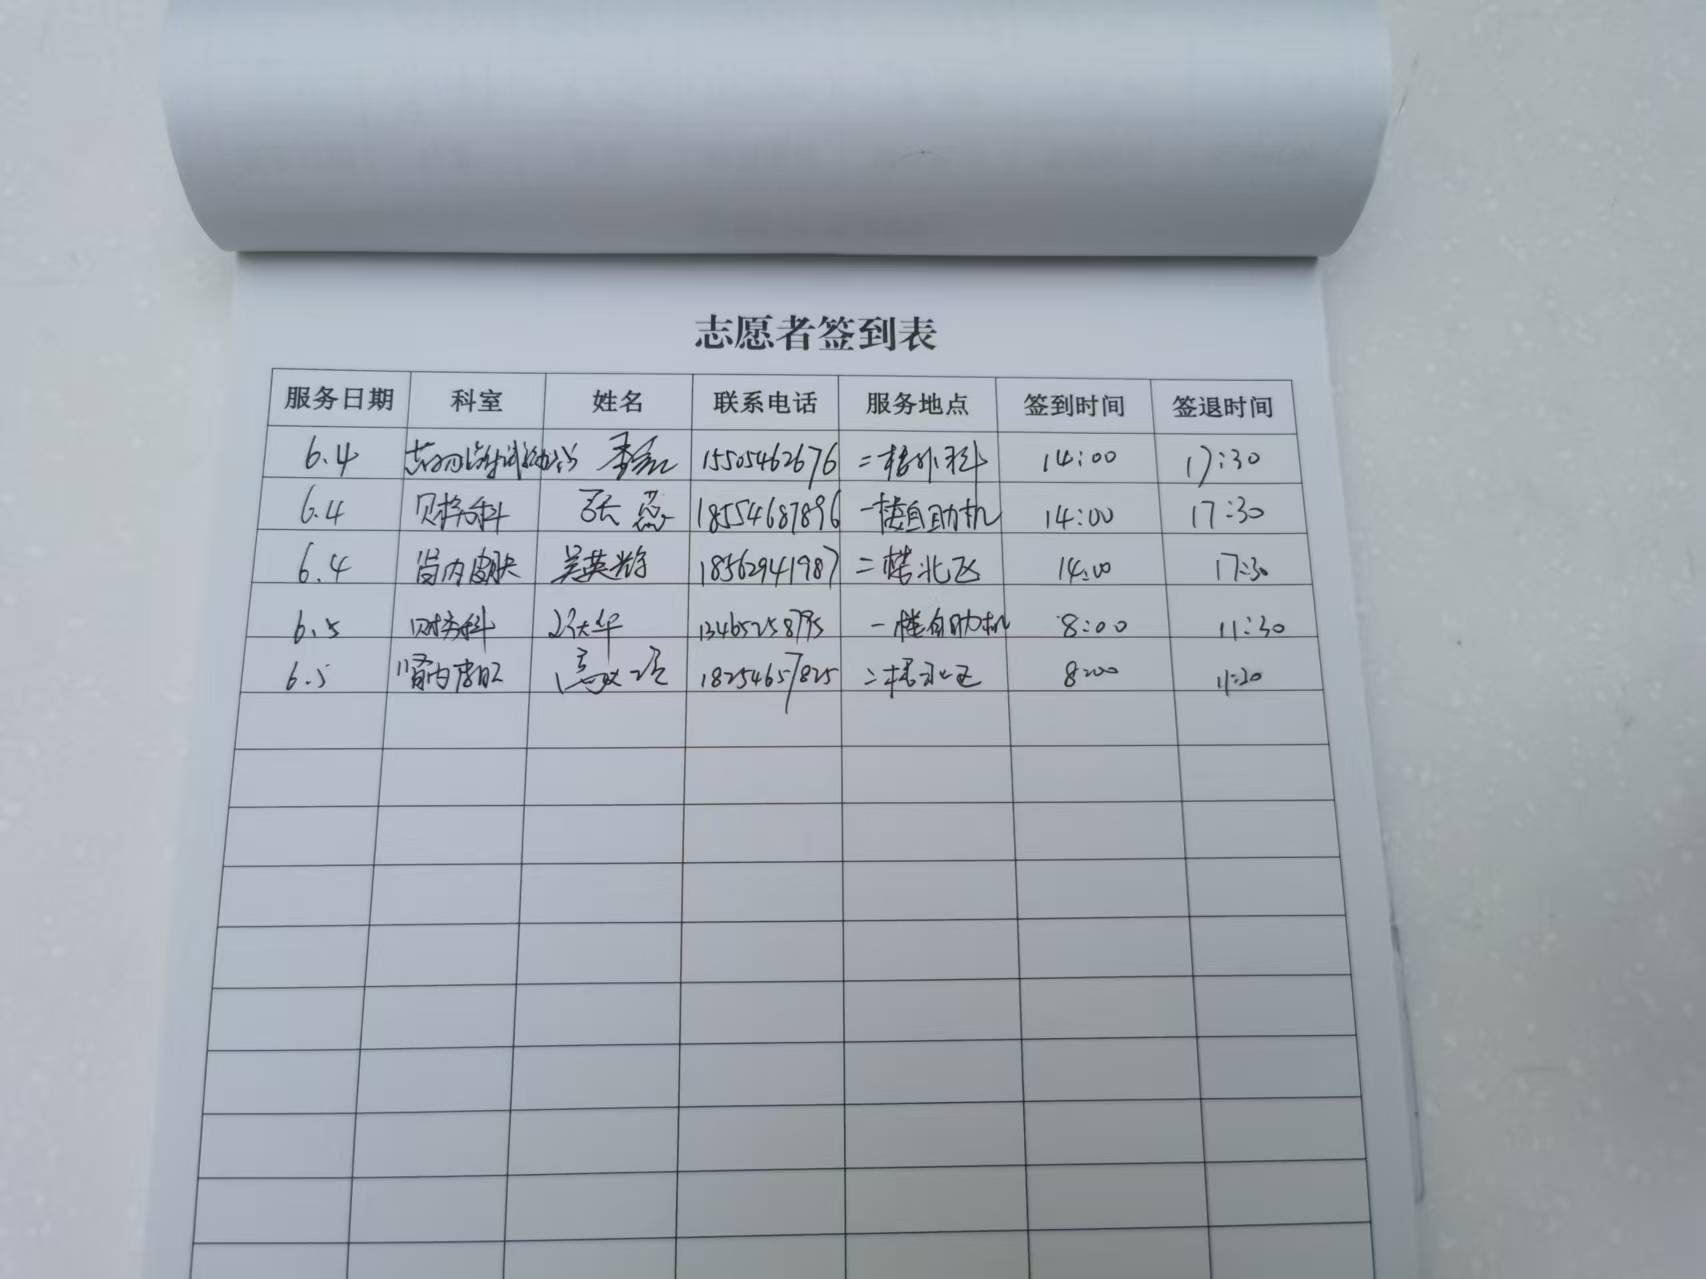 志愿者签到表
服务日期 科室 姓名 联系电话 服务地点 签到时间 签退时间
6.4 15505462676 二楼外科 14:00 17:30
6.4 财务科 张蕊 18554687896 一楼自助机 14:00 17:30
6.4 肾内皮肤 吴英 18562941987 二楼北区 14:00 17:30
6.5 财务科 华 13465258795 一楼自助机 8:00 11:30
6.5 肾内皮肤 18254657825 二楼北区 8:00 11:30